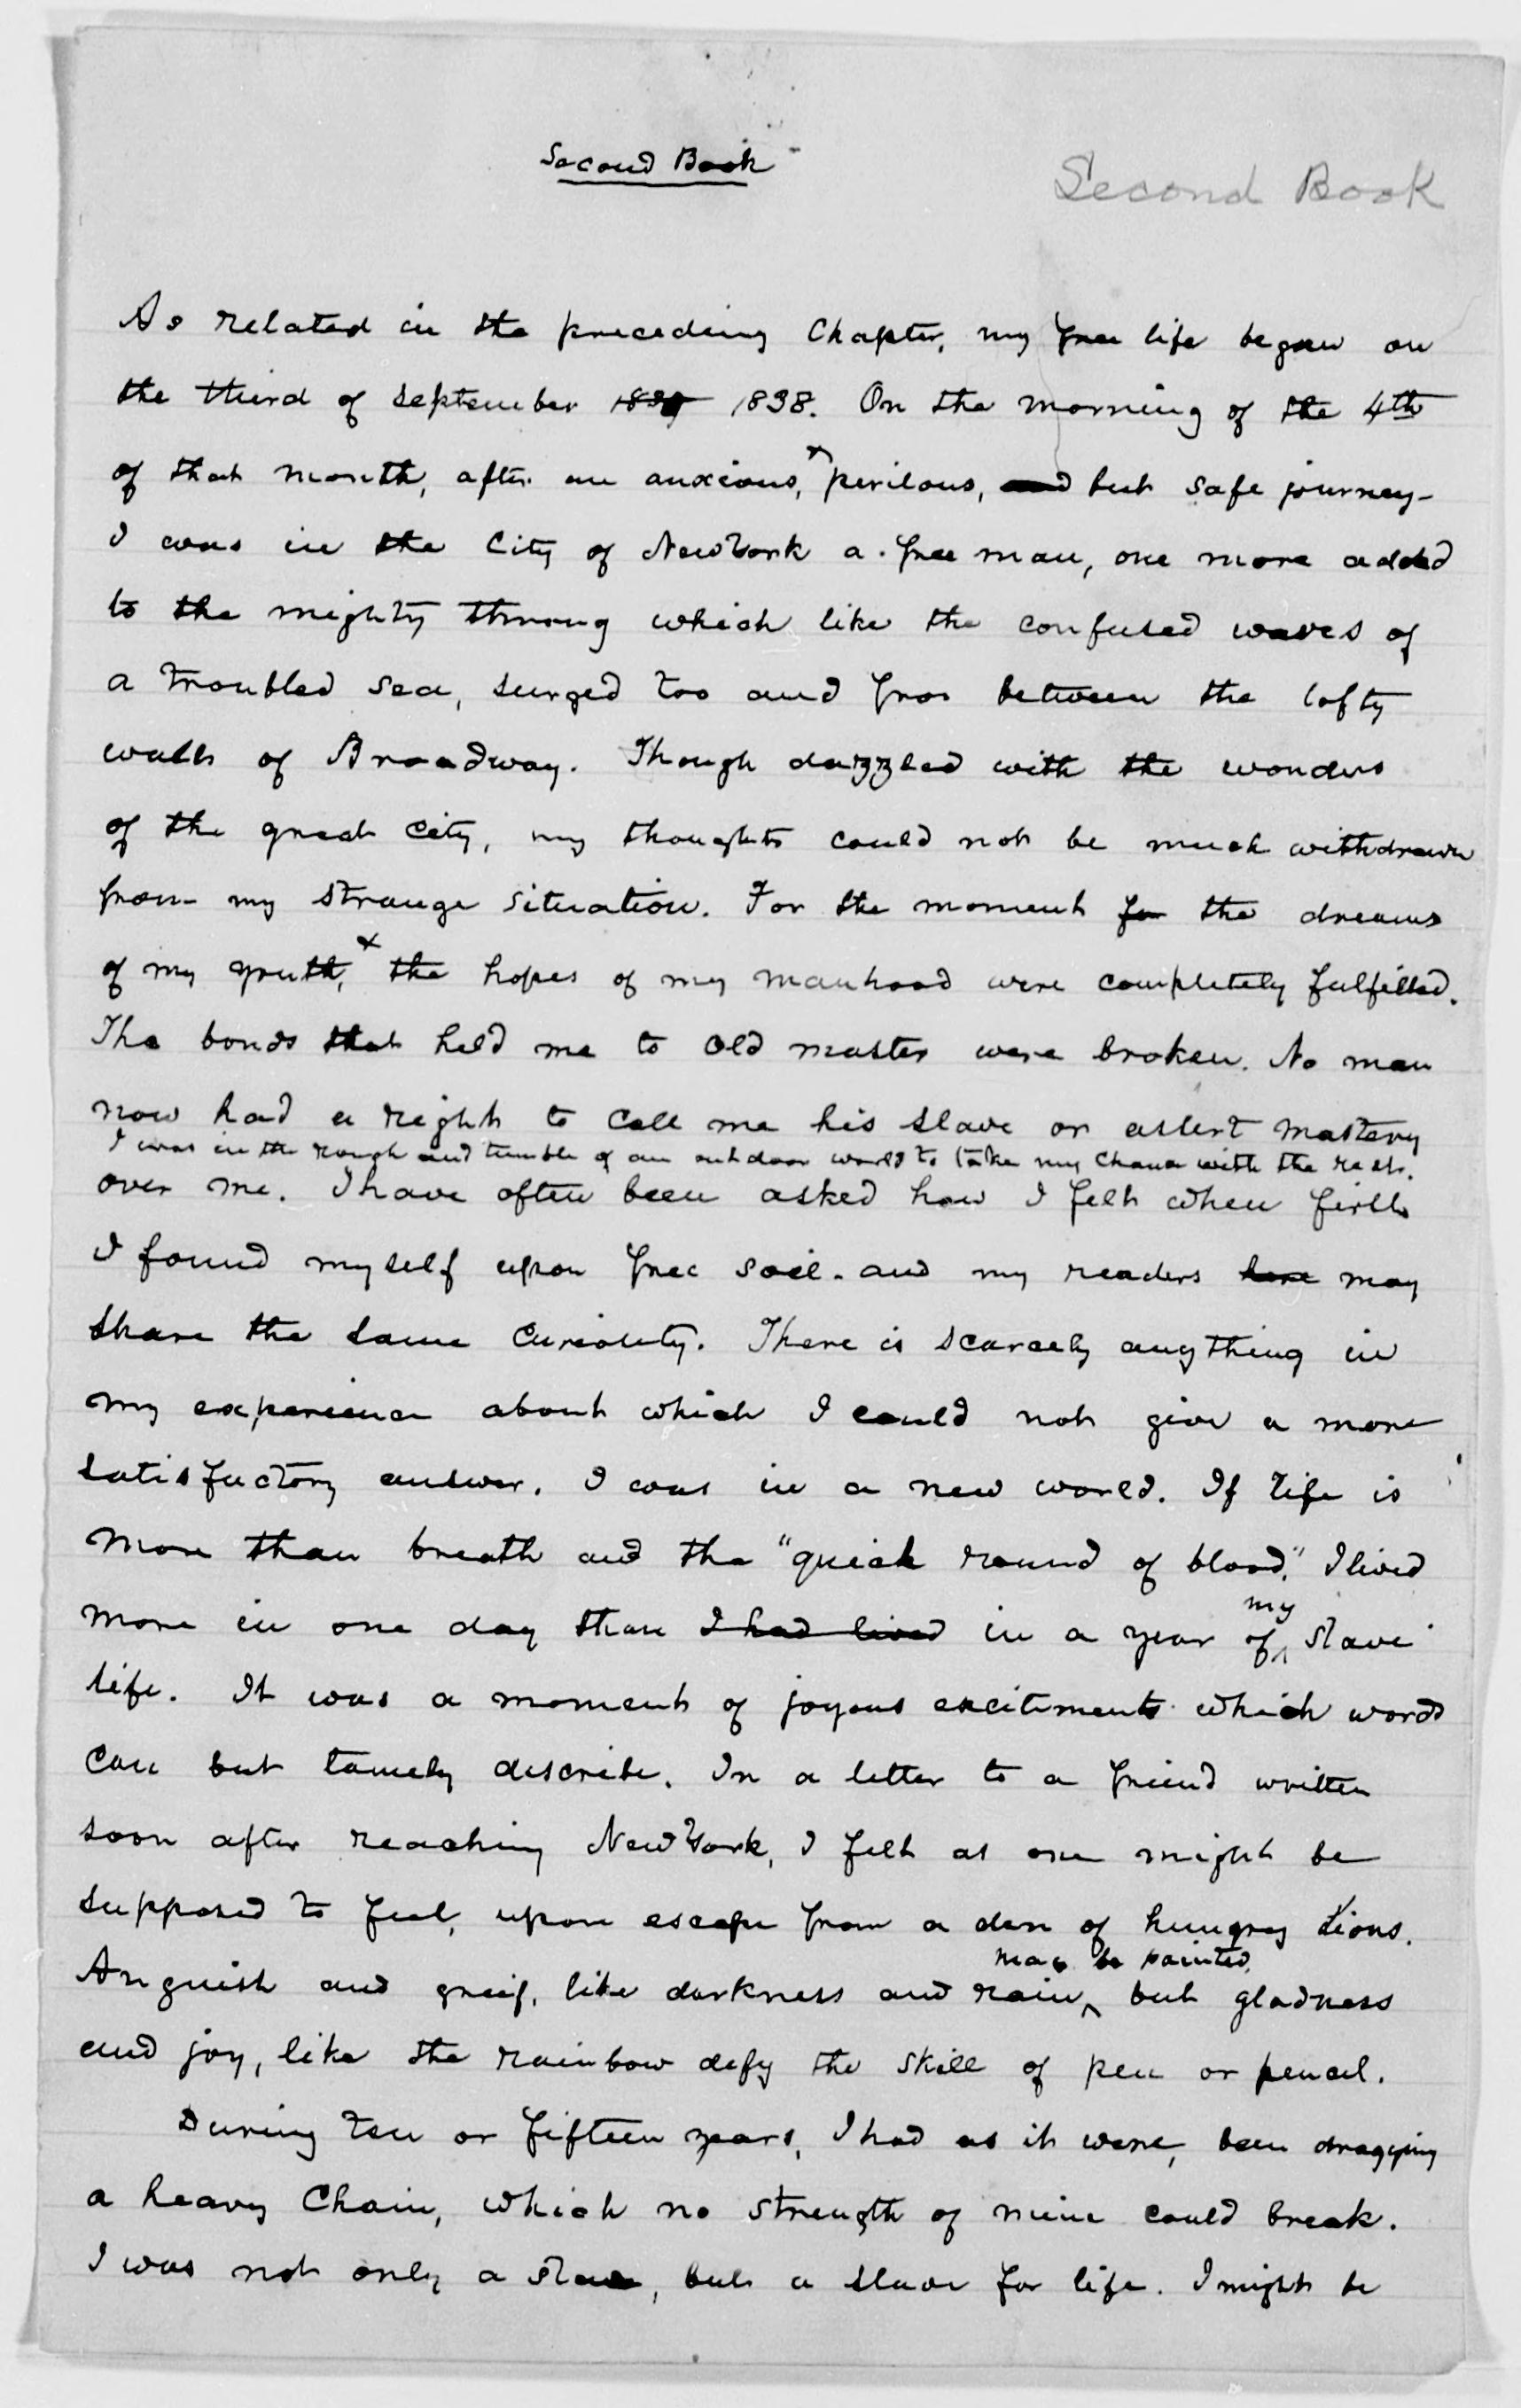 Second Book
Second Book
As related in the preceding Chapter, my free life began on
the third of September 1839 1838. On the morning of the 4th
of that month, after an anxious, + perilous, and but safe journey-
I was in the City of New York a free man, one more added
to the mighty throng which like the confused waves of
a troubled sea, surged too and fro between the lofty
walls of Broadway. Though dazzled with the wonders
of the great city, my thoughts could not be much withdrawn
from my strange situation. For the moment for the dreams
of my youth, + the hopes of my manhood were completely fulfilled.
The bonds that held me to old master were broken. No man
now had a right to call me his slave or assert mastery
I was in the rough and tumble of an outdoor world to take my chance with the rest.
over me. I have often been asked how I felt when first
I found myself upon free soil. and my readers here may
share the same curiosity. There is scarcely anything in
my experience about which I could not give a more
satisfactory answer. I was in a new world. If life is
more than breath and the "quick round of blood," I lived
my
more in one day than I had lived in a year of slave
life. It was a moment of joyous excitement which words
can but tamely describe. In a letter to a friend written
soon after reaching New York, I felt as one might be
supposed to feel, upon escape from a den of hungry lions.
may be painted,
Anguish and greif, like darkness and rain, but gladness
and joy, like the rainbow defy the skill of pen or pencil.
During ten or fifteen years, I had as it were, been dragging
a heavy Chain, which no strength of mine could break.
I was not only a slave, but a slave for life. I might be